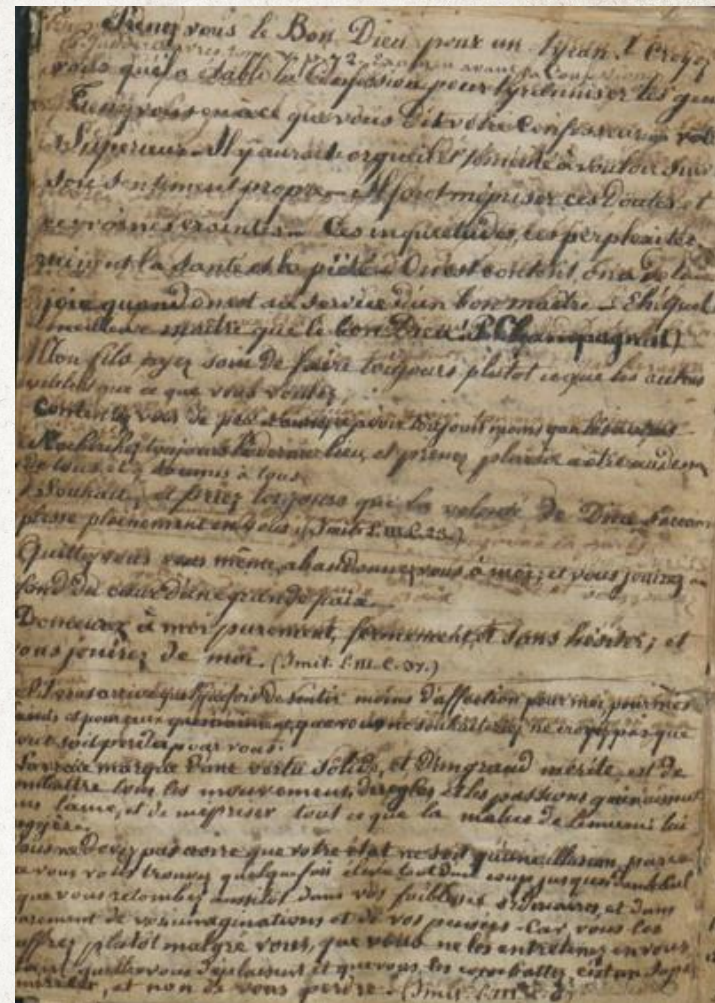 Prenez vous le Bon Dieu pour un tyran. & Croyez
vous qu'il a établi la Confession pour tyranniser les gens
Tenez vous en à ce que vous dit votre Confesseur votre
Supérieur. Il y aurait orgueil et témérité à vouloir suivre
son sentiment propre. Il faut mépriser ces Doutes et
ces vaines craintes. Ces inquiétudes, ces perplexités
ruinent la santé et la piété. On est content on a de la
joie quand on est au service d'un bon maître. Eh! Quel
meilleur maître que le bon Dieu! P. Champagnat)
Mon fils, ayez soin de faire toujours plutôt ce que les autres
veulent que ce que vous voulez.
Contentez vous de peu toujours moins que les autres
Recherchez toujours le dernier lieu, et prenez plaisir à être au dessous
de tous et soumis à tous
Souhaitez et priez toujours que la volonté de Dieu s'accom
plisse pleinement en vous. (Imit. L. III. C. 23.)
Quittez vous vous même, abandonnez vous à moi, et vous jouirez au
fond du cœur d'une grande paix.
Demeurez à moi purement, fermement, et sans hésiter; et
vous jouirez de moi. (Imit. L. III. C. 37.)
S'il vous arrive quelquefois de sentir moins d'affection pour moi, pour mes
et pour ne croyez pas que
tout soit perdu pour vous.
La vraie marque d'une vertu solide, et d'un grand mérite, est de
combattre tous les mouvements déréglés et les passions qui naissent
dans l'âme, et de mépriser tout ce que la malice de l'ennemi lui
suggère.
Vous ne devez pas croire que votre état ne soit qu'une illusion, parce
que vous vous trouvez quelquefois élevé tout d'un coup jusqu'au
que vous retombez aussitôt dans vos faiblesses ordinaires, et dans
de vos imaginations et de vos pensées. Car vous les
souffrez plutôt malgré vous, que vous ne les entretenez en vous
qu'elles vous déplaisent et que vous les combattez, c'est un sujet
mériter, et non de vous perdre. (Imit. L. III. C.